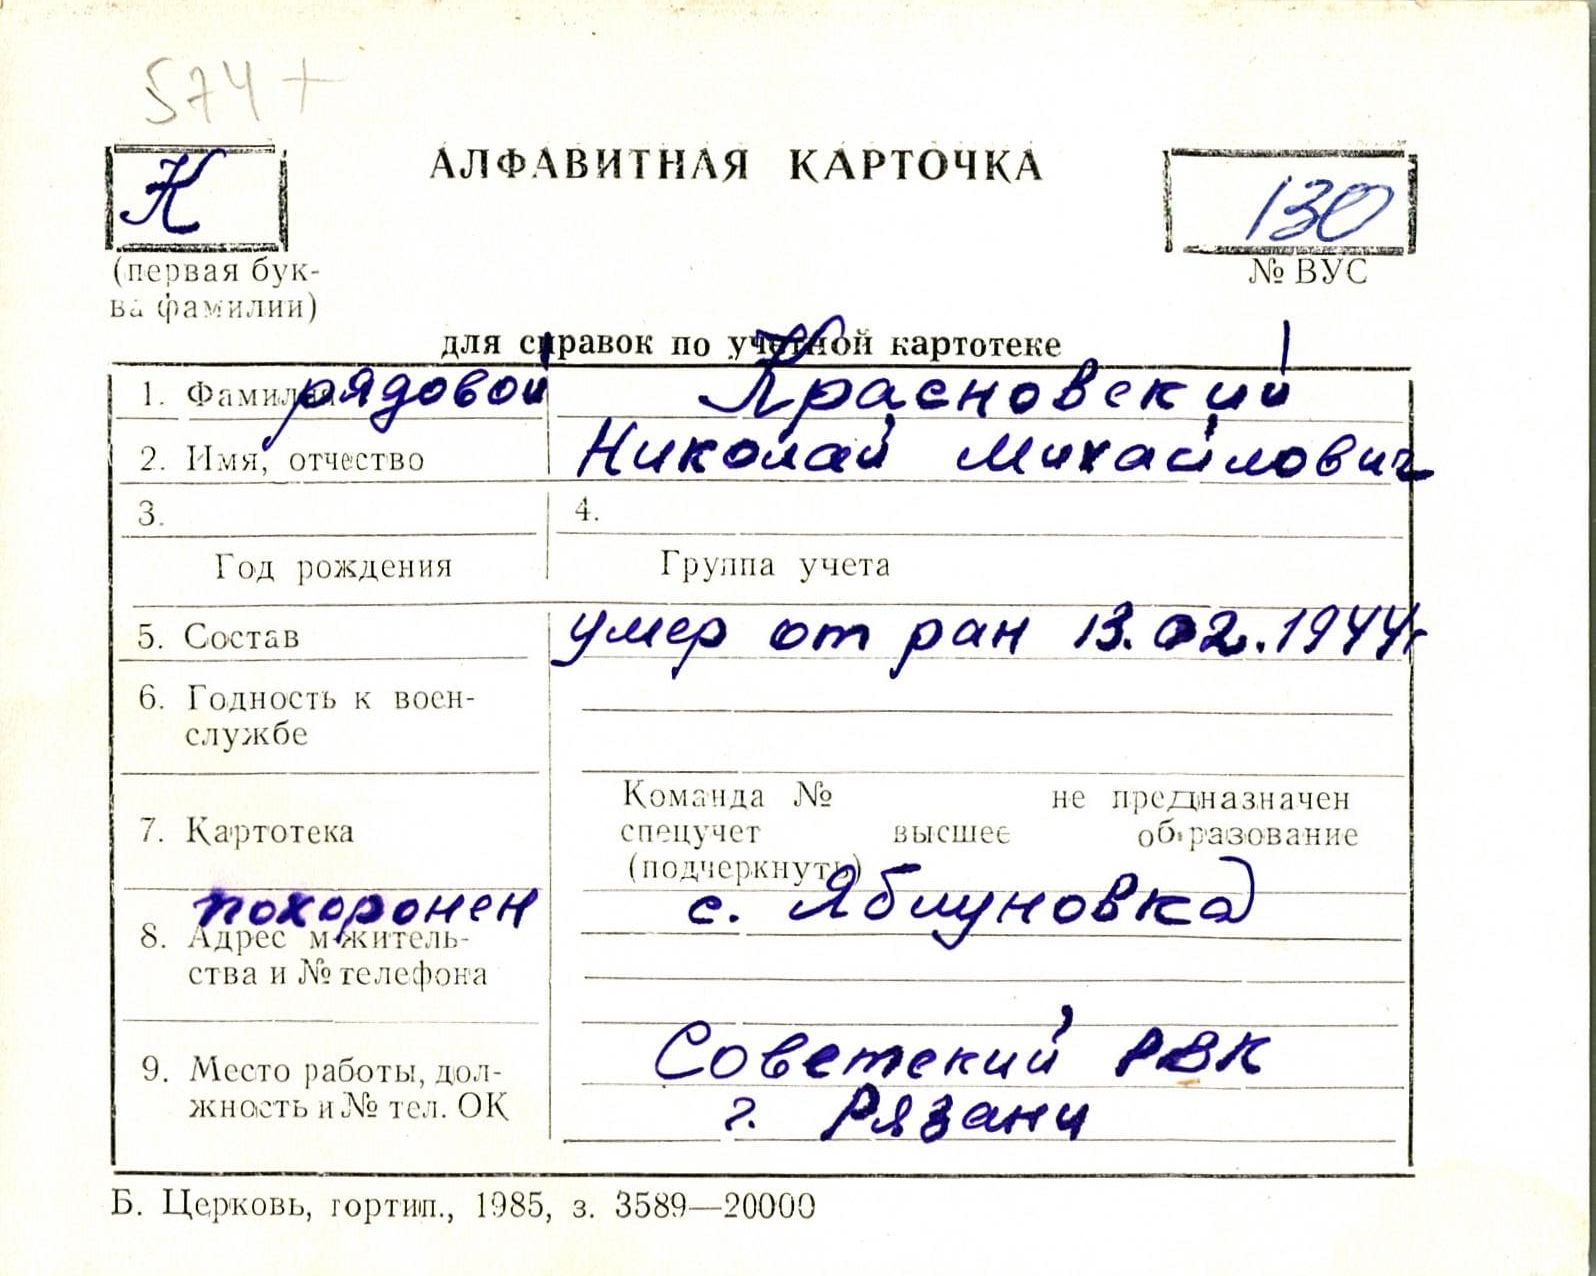 574+
К
АЛФАВИТНАЯ КАРТОЧКА
130
(первая бук-
ва фамилии)
№ ВУС
для справок по учетной картотеке
1. Фамилия рядовой Красновский
2. Имя, отчество Николай Михайлович
3. 4.
Год рождения Группа учета
5. Состав умер от ран 13.02.1944г
6. Годность к воен-
службе
Команда № не предназначен
7. Картотека спецучет высшее образование
(подчеркнуть)
похоронен с. Яблуновка
8. Адрес м/житель-
ства и № телефона
Советский РВК
9. Место работы, дол-
жность и № тел. ОК г. Рязани
Б. Церковь, гортип., 1985, з. 3589—20000